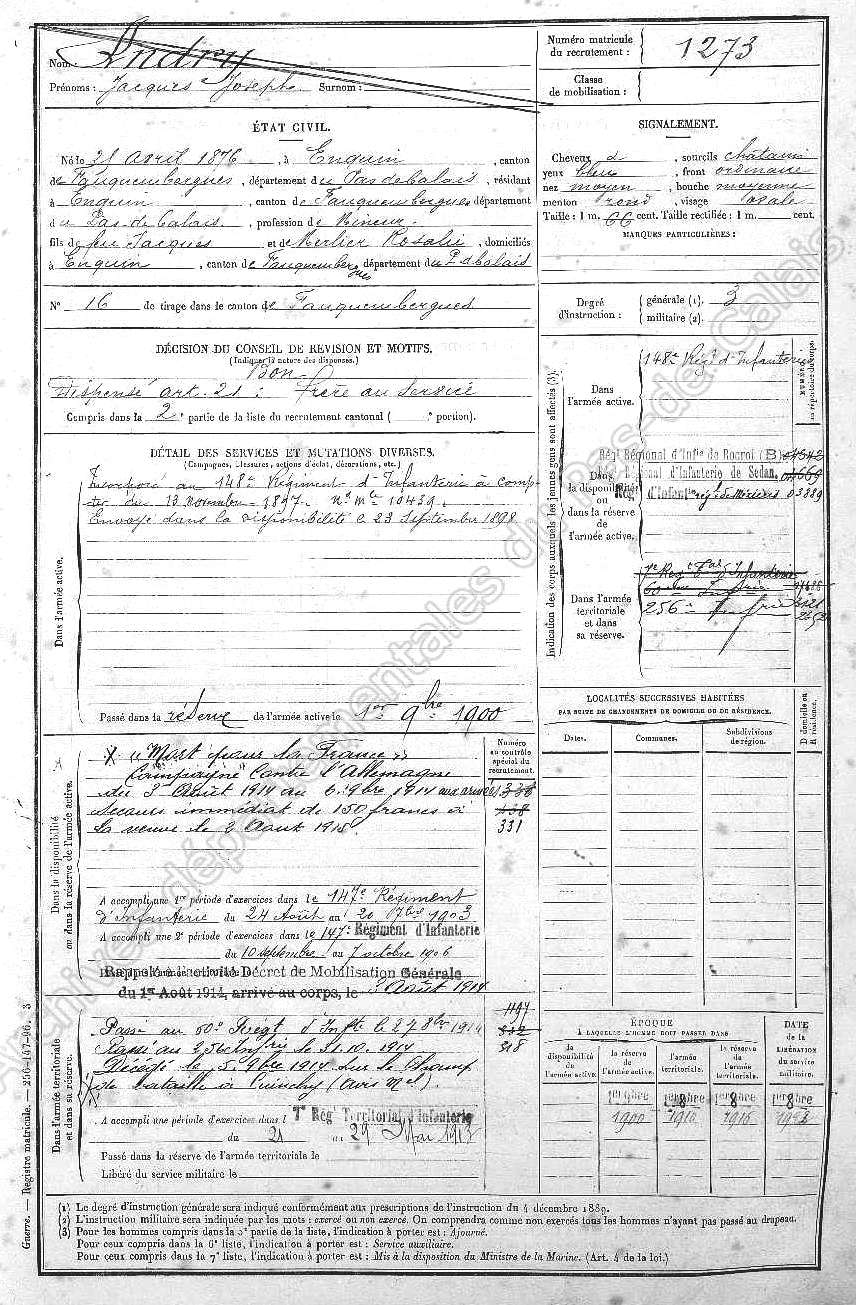 Nom : Andry
Prénoms : Jacques Joseph Surnom :
Numéro matricule du recrutement : 1273
Classe de mobilisation :
ÉTAT CIVIL.
Né le 21 avril 1876, à Enquin, canton
de Fauquembergues, département du Pas de Calais, résidant
à Enquin, canton de Fauquembergues département
du Pas-de-Calais, profession de Mineur
fils de feu Jacques et de Merlier Rosalie, domiciliés
à Enquin, canton de Fauquembergues département du P. d Calais
N° 16 de tirage dans le canton de Fauquembergues
SIGNALEMENT.
Cheveux d, sourcils châtains
yeux bleu, front ordinaire
nez moyen, bouche moyenne
menton rond, visage ovale
Taille : 1 m. 66 cent. Taille rectifiée : 1 m. cent.
MARQUES PARTICULIÈRES :
Degré d'instruction : générale (1). 3
militaire (2).
DÉCISION DU CONSEIL DE RÉVISION ET MOTIFS.
(Indiquer la nature des dispenses.)
Bon
Dispensé art. 21 : frère au service
Compris dans la 2e partie de la liste du recrutement cantonal ( e portion).
DÉTAIL DES SERVICES ET MUTATIONS DIVERSES.
(Campagnes, blessures, actions d'éclat, décorations, etc.)
Dans l'armée active.
Incorporé au 148e Régiment d'Infanterie à comp-
ter du 13 novembre 1897. N° Mle 10439.
Envoyé dans la disponibilité le 23 Septembre 1898
Passé dans la réserve de l'armée active le 1er 9bre 1900
Indication des corps auxquels les jeunes gens sont affectés (3).
NUMÉROS au répertoire du corps.
Dans l'armée active.
148e Régt d'Infanterie
Dans la disponibilité ou dans la réserve de l'armée active.
Régt Régional d'Infie de Rocroi (B) 01342
Régt Régional d'Infanterie de Sedan, 01669
Régt d'Infant Régt de Mézières 03389
Dans l'armée territoriale et dans sa réserve.
7e Regt Tal d'Infanterie
60eme Infrie
256e Infrie
Dans la disponibilité ou dans la réserve de l'armée active.
Numéro au contrôle spécial du recrutement.
X "Mort pour la France"
Campagne contre l'Allemagne
du 3 Août 1914 au 5 9bre 1914 aux armées
Secours immédiat de 150 francs à
la veuve le 2 Aout 1915
338
438
331
A accompli une 1re période d'exercices dans le 147e Régiment
d'Infanterie du 24 Août au 20 7bre 1903
A accompli une 2e période d'exercices dans le 147e Régiment d'Infanterie
du 10 septembre au 7 octobre 1906
Rappelé à l'activité Décret de Mobilisation Générale
du 1er Août 1914, arrivé au corps, le 3 Août 1914
Dans l'armée territoriale et dans sa réserve.
Passé au 60e Régt d'Infie le 27 8bre 1914
Passé au 256 Infrie le 31.10.1914
Décédé le 5 9bre 1914 sur le Champ
de bataille à Cuinchy (avis Mel).
1197
318
A accompli une période d'exercices dans l 7e Rég Territorial d'Infanterie
du 21 au 29 Mai 1913
Passé dans la réserve de l'armée territoriale le
Libéré du service militaire le
LOCALITÉS SUCCESSIVES HABITÉES
PAR SUITE DE CHANGEMENTS DE DOMICILE OU DE RÉSIDENCE.
Dates.
Communes.
Subdivisions de région.
D domicile ou R résidence.
ÉPOQUE
À LAQUELLE L'HOMME DOIT PASSER DANS
DATE de la LIBÉRATION du service militaire.
la disponibilité de l'armée active.
la réserve de l'armée active.
l'armée territoriale.
la réserve de l'armée territoriale.
1er 9bre 1900
1er 8bre 1910
1er 8bre 1916
1er 8bre
(1) Le degré d'instruction générale sera indiqué conformément aux prescriptions de l'instruction du 4 décembre 1889.
(2) L'instruction militaire sera indiquée par les mots : exercé ou non exercé. On comprendra comme non exercés tous les hommes n'ayant pas passé au drapeau.
(3) Pour les hommes compris dans la 5e partie de la liste, l'indication à porter est : Ajourné.
Pour ceux compris dans la 6e liste, l'indication à porter est : Service auxiliaire.
Pour ceux compris dans la 7e liste, l'indication à porter est : Mis à la disposition du Ministre de la Marine. (Art. 4 de la loi.)
Guerre. — Registre matricule. — 256-147-96. 3
Archives départementales du Pas-de-Calais